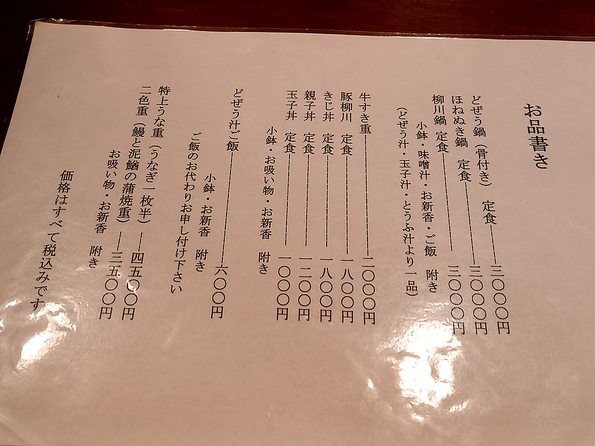 お品書き
どぜう鍋(骨付き) 定食――三〇〇〇円
ほねぬき鍋 定食――三〇〇〇円
柳川鍋 定食――三〇〇〇円
小鉢・味噌汁・お新香・ご飯 附き
(どぜう汁・玉子汁・とうふ汁より一品)
牛すき重――二〇〇〇円
豚柳川 定食――一八〇〇円
きじ丼 定食――一八〇〇円
親子丼 定食――一二〇〇円
玉子丼 定食――一〇〇〇円
小鉢・お吸い物・お新香 附き
どぜう汁ご飯――六〇〇円
小鉢・お新香 附き
ご飯のお代わりお申し付け下さい
特上うな重(うなぎ一枚半)―四五〇〇円
二色重(鰻と泥鰌の蒲焼重)―三五〇〇円
お吸い物・お新香 附き
価格はすべて税込みです